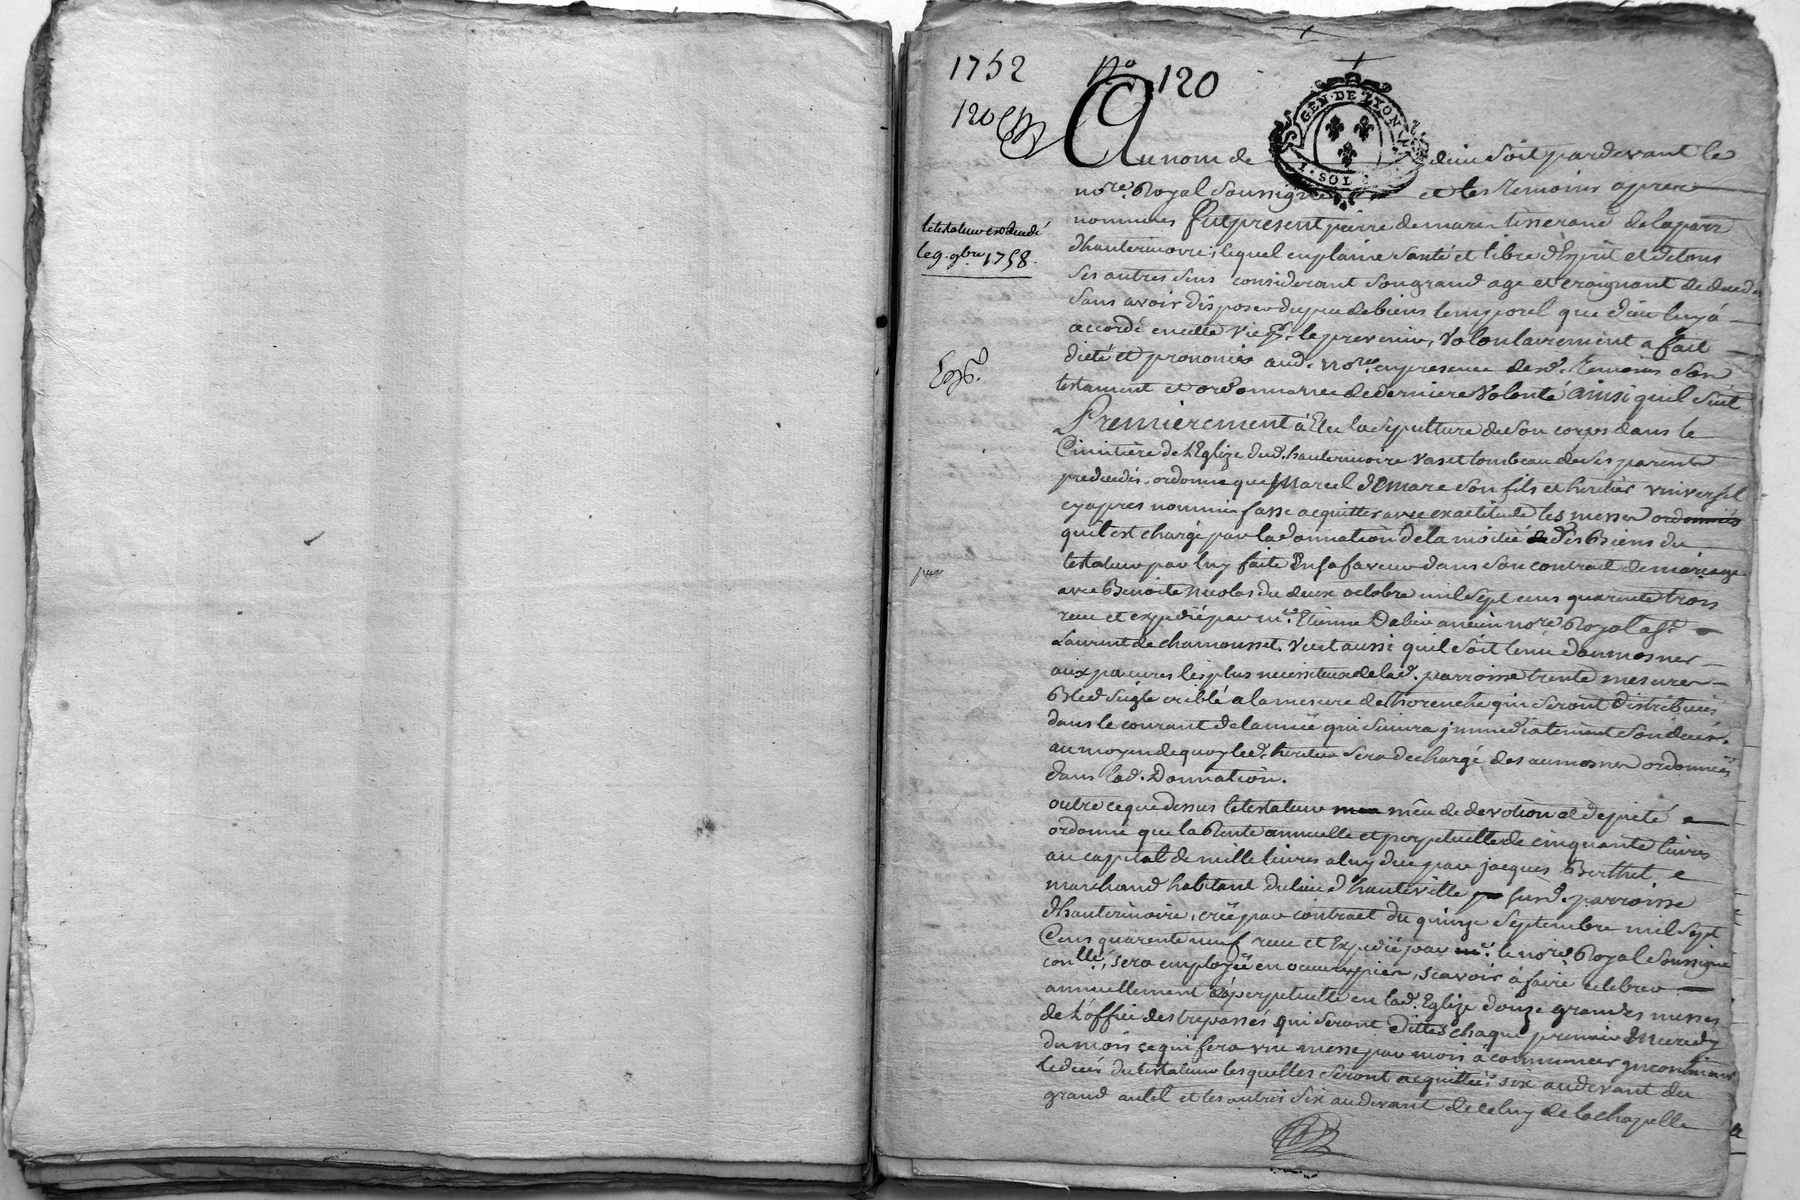 1752
No 120
120
GEN. DE LYON
1. SOL
Au nom de dieu soit pardevant le
nore. Royal soussigné et les temoins apres
nommes fut present pierre demare tisserand de la parr
d'hauterivoire, lequel en plaine santé et libre d'Esprit et de tous
ses autres sens considerant son grand age et craignant de deceder
sans avoir disposer du peu de biens temporel que dieu luy á
accordé en cette vie pr. le prevenir, volontairement a fait
dicté et prononcé aud. nore. en presence desd. temoins son
testament et ordonnance de derniere volonté ainsi quil suit
letestateur est decedé
le 9. 9bre 1758.
Exp.
Premierement á Elu la sepulture de son corps dans le
Cimitiere de l'Eglize dud. hauterivoire vas et tombeau de ses parents
predecedés. ordonne que Marcel demare son fils et heritier universel
cy apres nommé fasse acquitter avec exactitude les messes ordonnées
quil est chargé par la donnation de la moitié de ses Biens du
testateur par luy faite En sa faveur dans son contract de mariage
avec Benoite nicolas du deux octobre mil sept cens quarente trois
receu et expedié par me. Etienne Dalin ancien nore Royal a St.
Laurent de chamousset. veut aussi quil soit tenu d'aumosner
aux pauvres les plus necessiteux de lad. parroisse trente mesures
Bled seigle criblé a la mesure de thorenche qui seront distribuées
dans le courant de lannée qui suivra immediatement son decés.
au moyen de quoy led. heritier sera dechargé des aumosnes ordonnées
dans lad. Donnation.
outre ce que dessus le testateur mêu de devotion et de pieté
ordonne que la Rente annuelle et perpetuelle de cinquante livres
au capital de mille livres a luy deue par jacques Berthet
marchand habitant du lieu d'hauteville susd. parroisse
d'hauterivoire, crée par contract du quinze septembre mil sept
Cens quarente neuf receu et Expedié par le nore Royal soussigné
conllé, sera employée en oeuvres pies, scavoir á faire celebrer
annuellement et á perpetuité en lad. Eglize douze grandes messes
de l'office des trepassés qui seront dittes chaque premier Mecredy
du mois ce qui fera une messe par mois á commencer incontinant
le decés du testateur lesquelles seront acquittées six au devant du
grand autel et les autres six au devant de celuy de la chapelle